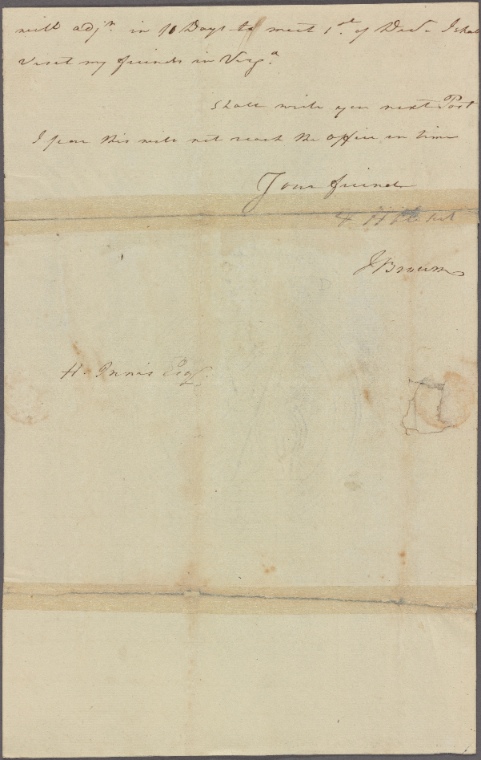 will adjn. in 10 Days to meet 1st. of Decr. I shall
Visit my friends in Virga.
Shall write you next Post
I fear this will not reach the office in time
Your friend
& Hble. Sert
J Brown
H. Innis Esqr.